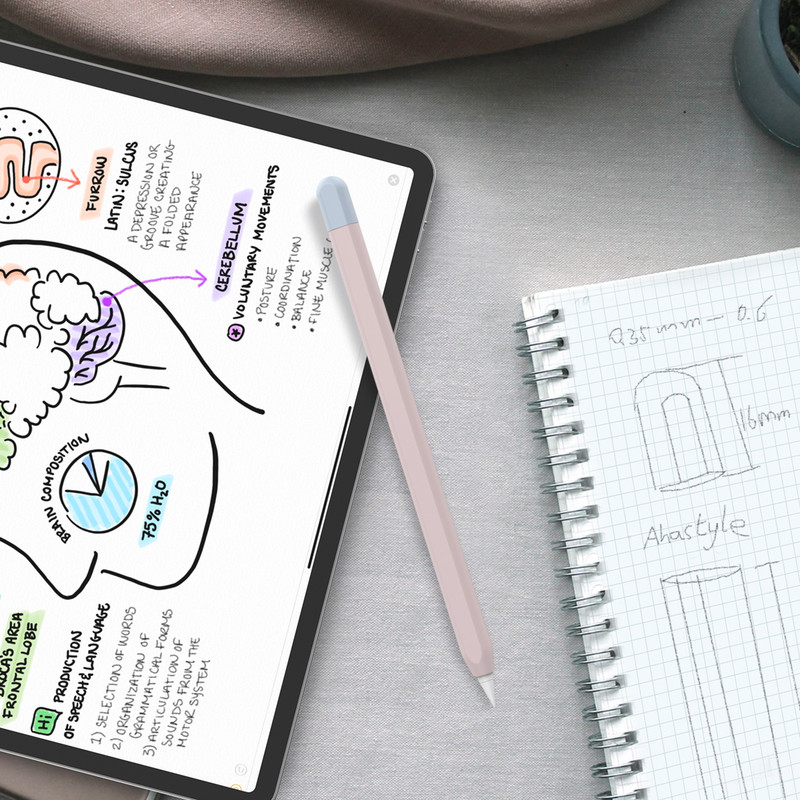 FURROW
LATIN: SULCUS
A DEPRESSION OR
GROOVE CREATING
A FOLDED
APPEARANCE
CEREBELLUM
* VOLUNTARY MOVEMENTS
• POSTURE
• COORDINATION
• BALANCE
• FINE MUSCLE
BRAIN COMPOSITION
75% H₂O
BROCA'S AREA
FRONTAL LOBE
Hi PRODUCTION
OF SPEECH & LANGUAGE
1) SELECTION OF WORDS
2) ORGANIZATION OF
GRAMMATICAL FORMS
3) ARTICULATION OF
SOUNDS FROM THE
MOTOR SYSTEM
0.35 mm — 0.6
16mm
Ahastyle